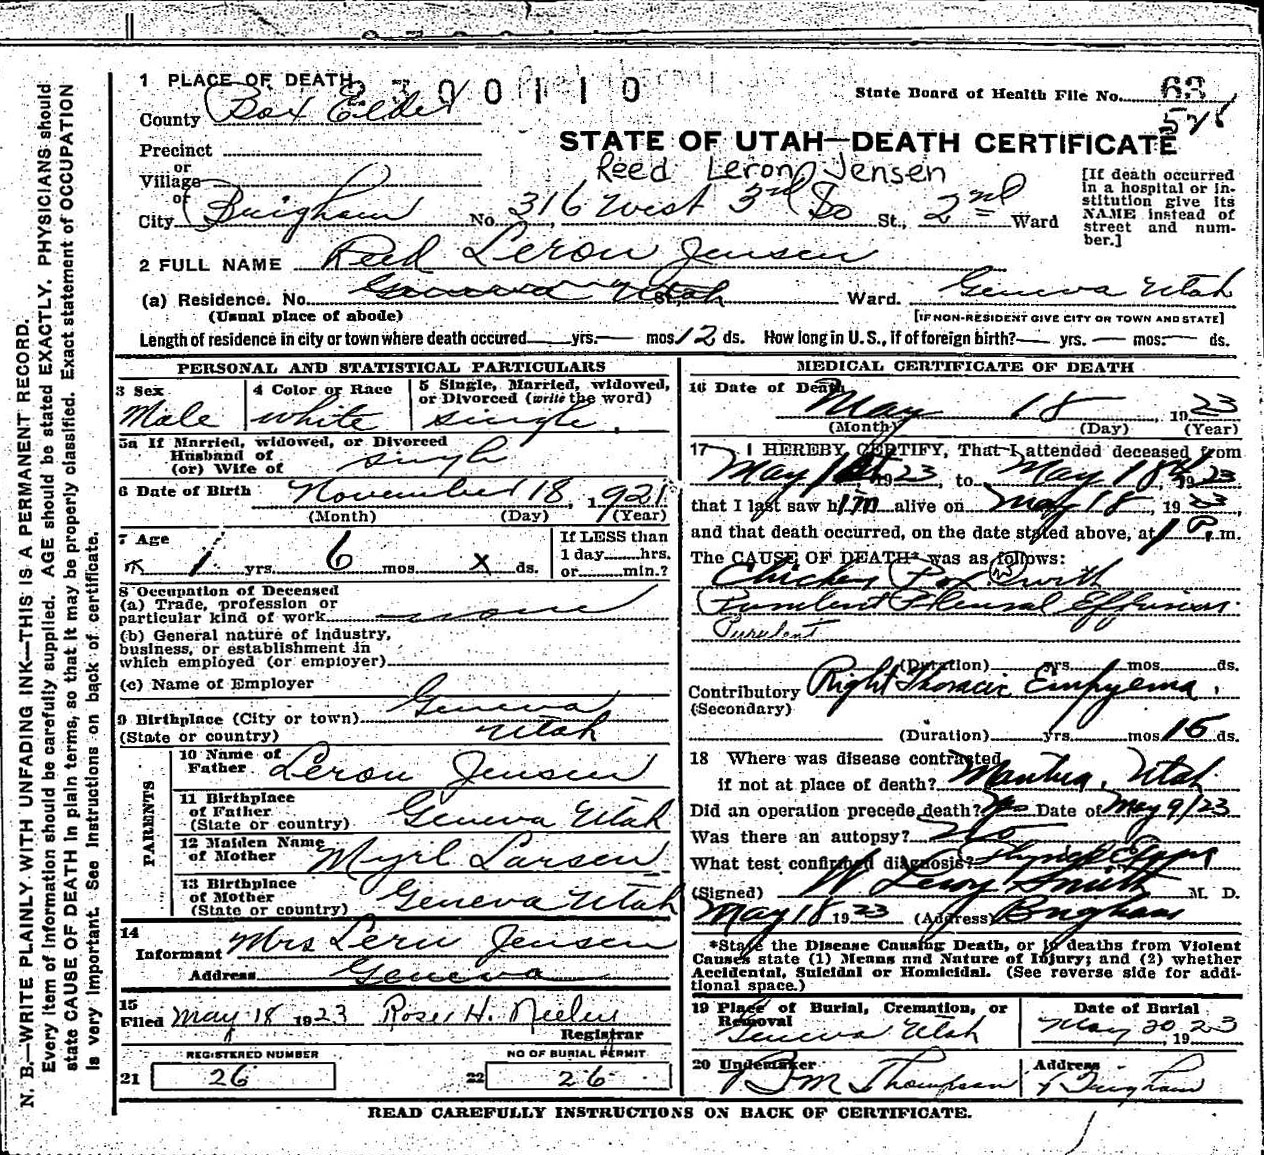 N. B.—WRITE PLAINLY WITH UNFADING INK—THIS IS A PERMANENT RECORD.
Every item of information should be carefully supplied. AGE should be stated EXACTLY. PHYSICIANS should
state CAUSE OF DEATH in plain terms, so that it may be properly classified. Exact statement of OCCUPATION
is very important. See instructions on back of certificate.
1 PLACE OF DEATH 2300110
State Board of Health File No. 63
County Box Elder
STATE OF UTAH—DEATH CERTIFICATE
Precinct
or
Village
or
Reed Leron Jensen
City Brigham No. 316 West 3rd So St., 2nd Ward
[If death occurred
in a hospital or in-
stitution give its
NAME instead of
street and num-
ber.]
2 FULL NAME Reed Leron Jensen
(a) Residence. No. Geneva Utah St., Ward. Geneva Utah
(Usual place of abode) [IF NON-RESIDENT GIVE CITY OR TOWN AND STATE]
Length of residence in city or town where death occured yrs. mos. 12 ds. How long in U.S., if of foreign birth? yrs. mos. ds.
PERSONAL AND STATISTICAL PARTICULARS
3 Sex
Male
4 Color or Race
white
5 Single, Married, widowed,
or Divorced (write the word)
single
5a If Married, widowed, or Divorced
Husband of
(or) Wife of single
6 Date of Birth November 18, 1921
(Month) (Day) (Year)
7 Age
1 yrs. 6 mos. x ds.
If LESS than
1 day hrs.
or min.?
8 Occupation of Deceased
(a) Trade, profession or
particular kind of work none
(b) General nature of industry,
business, or establishment in
which employed (or employer)
(c) Name of Employer
9 Birthplace (City or town) Geneva
(State or country) Utah
PARENTS
10 Name of
Father Leron Jensen
11 Birthplace
of Father
(State or country) Geneva Utah
12 Maiden Name
of Mother Myrl Larsen
13 Birthplace
of Mother
(State or country) Geneva Utah
14
Informant Mrs Leru Jensen
Address Geneva
15
Filed May 18 1923 Rose H. Nielsen
Registrar
REGISTERED NUMBER
21 26
NO OF BURIAL PERMIT
22 26
MEDICAL CERTIFICATE OF DEATH
16 Date of Death
May 18, 1923
(Month) (Day) (Year)
17 I HEREBY CERTIFY, That I attended deceased from
May 1st 1923, to May 18th, 1923
that I last saw him alive on May 18, 1923,
and that death occurred, on the date stated above, at 1 P. m.
The CAUSE OF DEATH* was as follows:
Chicken Pox with
Purulent Pleural Effusion.
Purulent
(Duration) yrs. mos. ds.
Contributory Right Thoracic Empyema.
(Secondary)
(Duration) yrs. mos. 15 ds.
18 Where was disease contracted
if not at place of death? Mantua, Utah
Did an operation precede death? Yes Date of May 9/23
Was there an autopsy? No
What test confirmed diagnosis?
(Signed) W Leroy Smith M. D.
May 18 1923 (Address) Brigham
*State the Disease Causing Death, or in deaths from Violent
Causes state (1) Means and Nature of Injury; and (2) whether
Accidental, Suicidal or Homicidal. (See reverse side for addi-
tional space.)
19 Place of Burial, Cremation, or
Removal
Geneva Utah
Date of Burial
May 20, 1923
20 Undertaker
B M Thompson
Address
Brigham
READ CAREFULLY INSTRUCTIONS ON BACK OF CERTIFICATE.